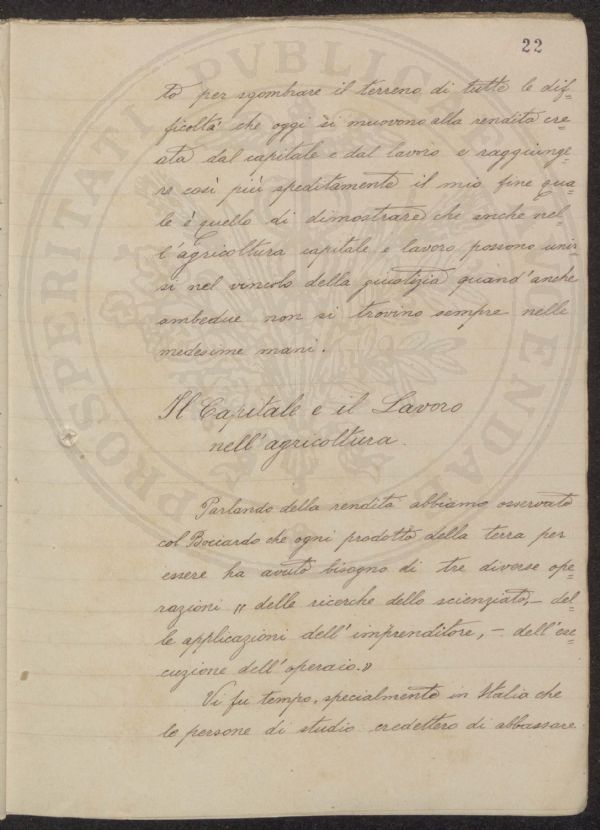 22
to per sgombrare il terreno di tutte le dif=
ficoltà che oggi si muovono alla rendita cre=
ata dal capitale e dal lavoro e raggiunge=
re così più speditamente il mio fine qua=
le è quello di dimostrare che anche nel=
l'agricoltura capitale e lavoro possono unir=
si nel vincolo della giustizia quand'anche
ambedue non si trovino sempre nelle
medesime mani.
Il Capitale e il Lavoro
nell'agricoltura.
Parlando della rendita abbiamo osservato
col Boccardo che ogni prodotto della terra per
essere ha avuto bisogno di tre diverse ope=
razioni "delle ricerche dello scienziato, – del=
le applicazioni dell'imprenditore, – dell'ese=
cuzione dell'operaio."
Vi fu tempo, specialmente in Italia che
le persone di studio credettero di abbassare
PROSPERITATI PVBLICAE AVGENDAE